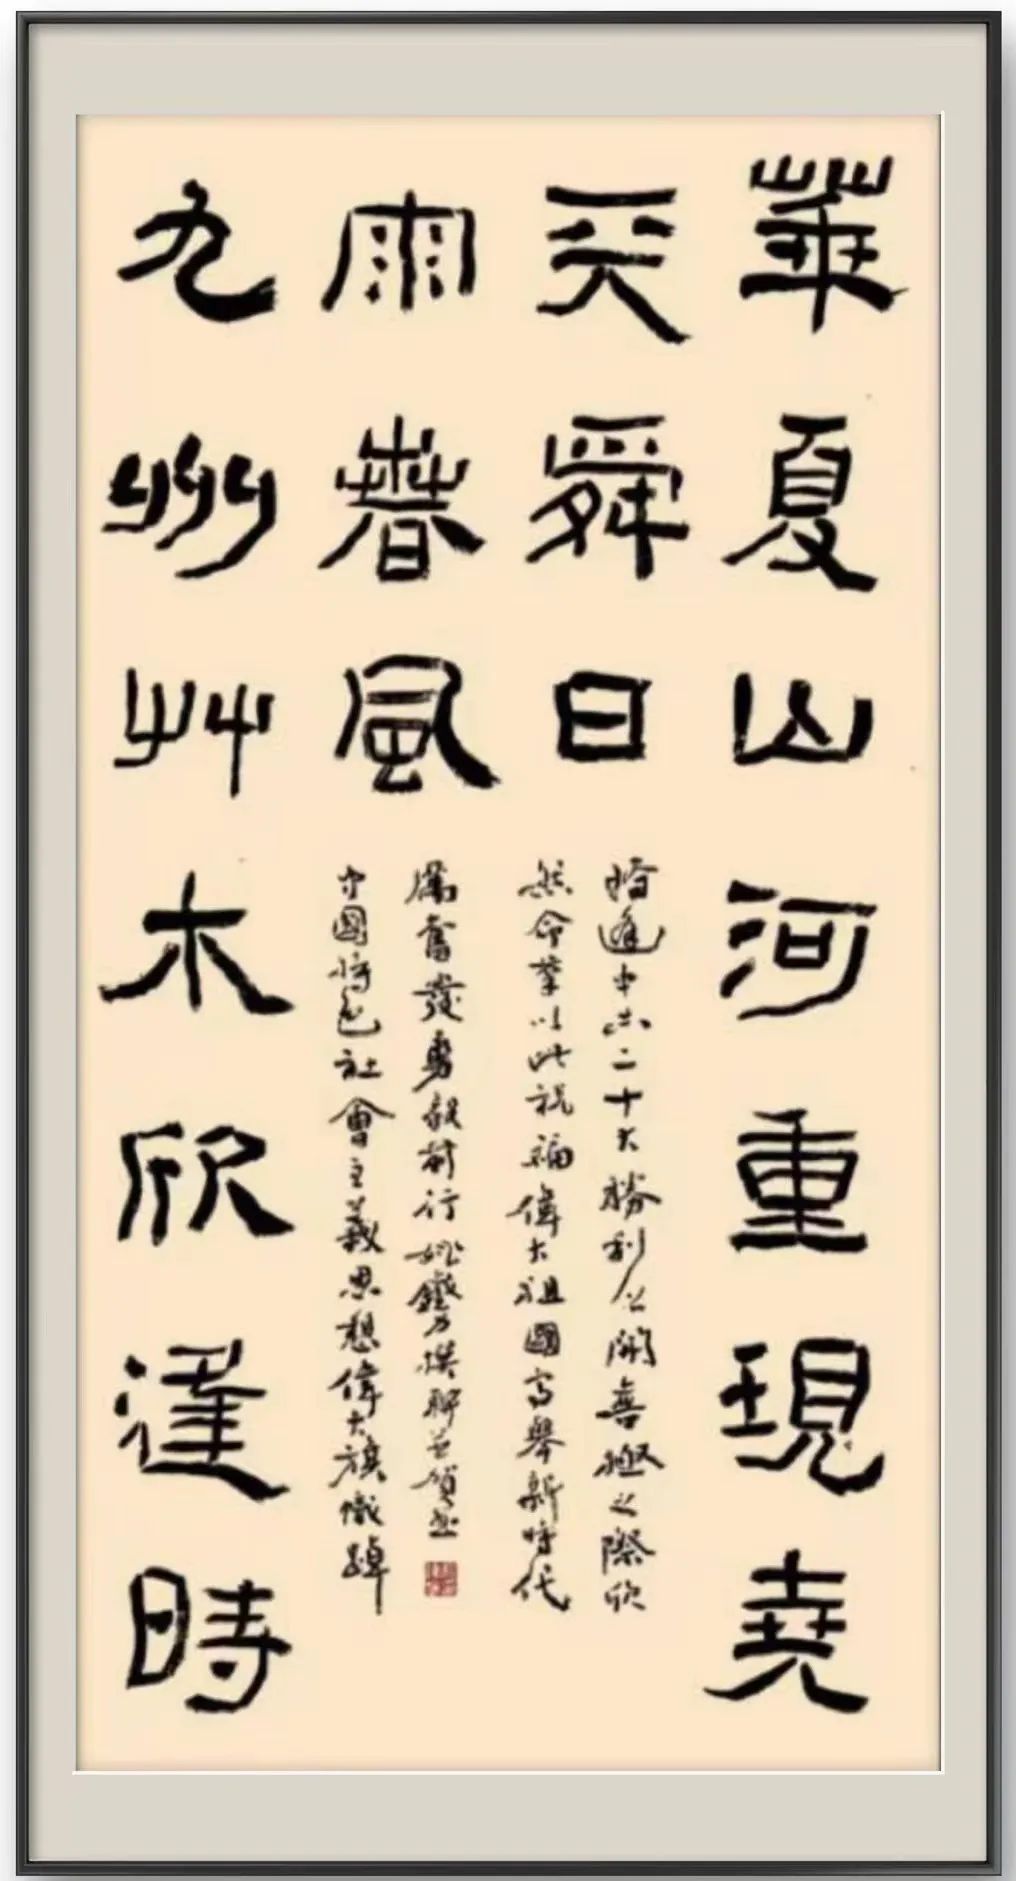 華夏山河重現堯
天舜日
恰逢中共二十大勝利召開喜極之際欣
然命筆以此祝福偉大祖國高舉新時代
九州艸木欣逢時
雨春風
中國特色社會主義思想偉大旗幟踔
厲奮發勇毅前行姚鐵力撰聯並賀書